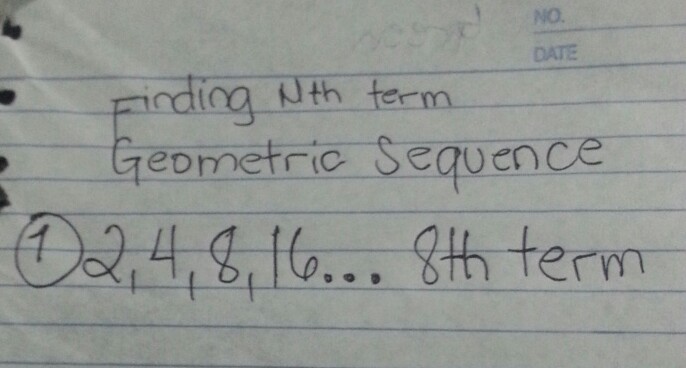 NO.
DATE
Finding Nth term
Geometric Sequence
① 2, 4, 8, 16... 8th term